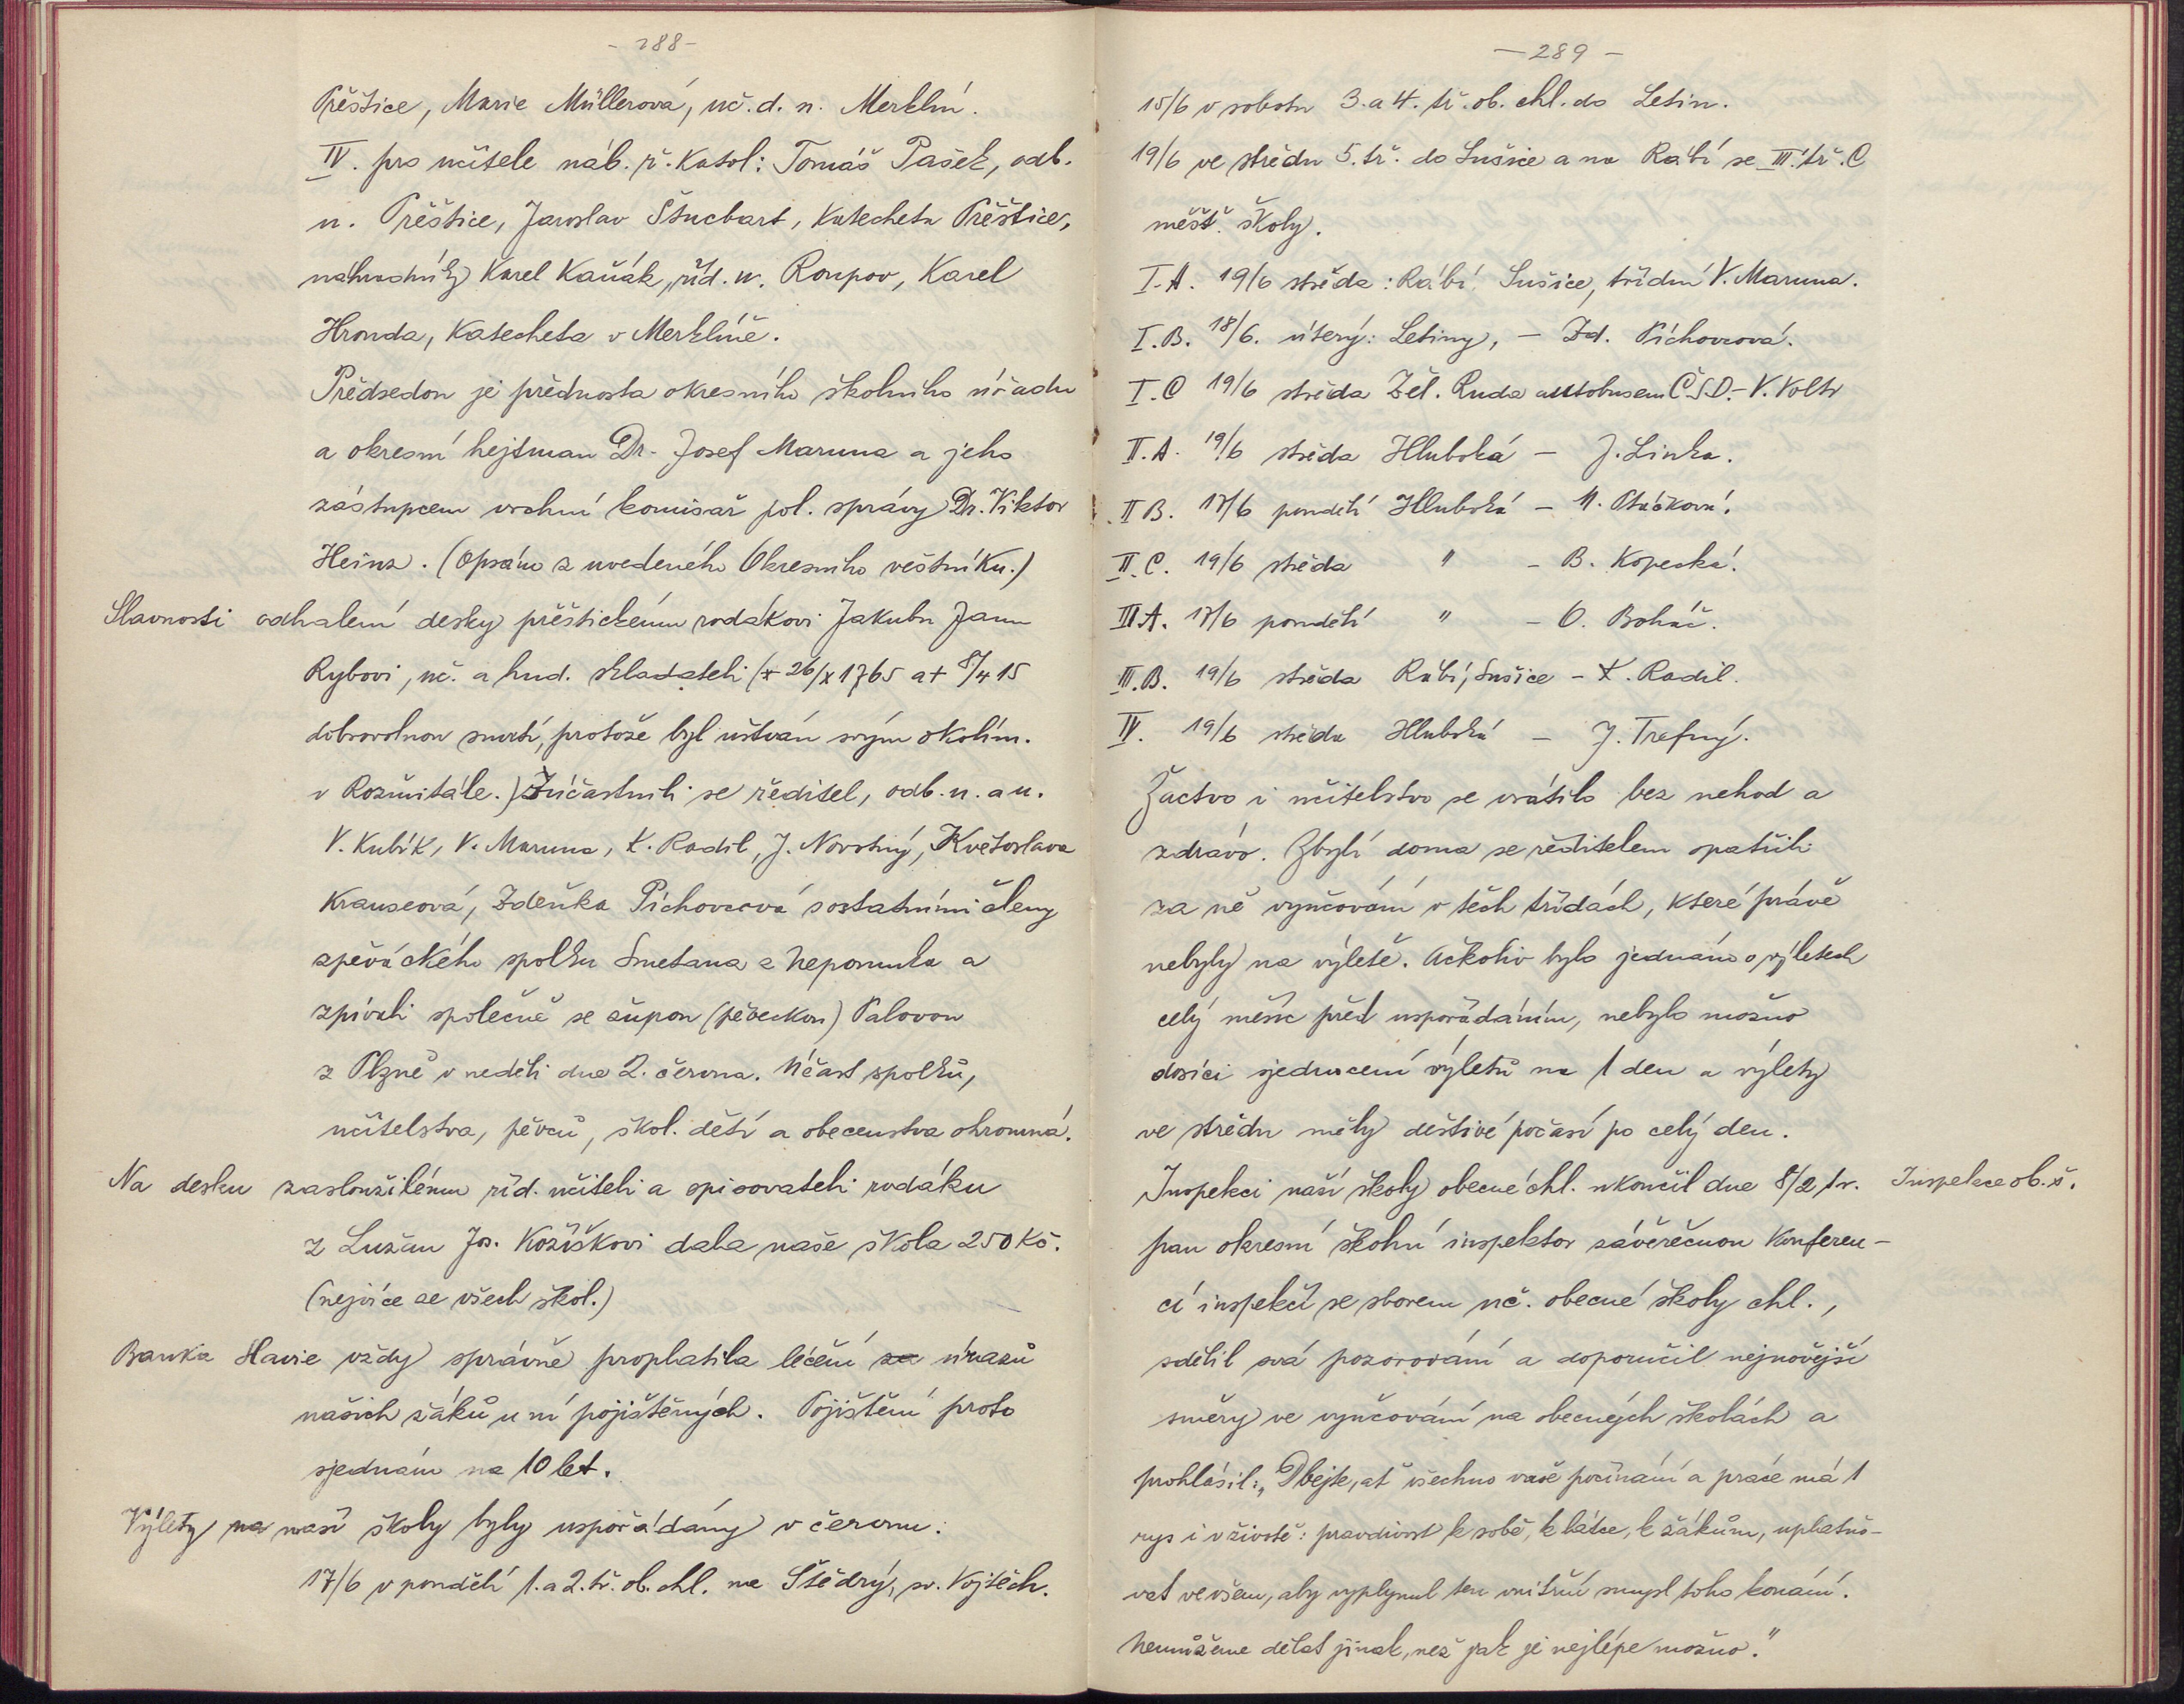 - 288 -
Přeštice, Marie Müllerová, uč. d. n. Merklín.
IV. pro učitele náb. ř. katol: Tomáš Pašek, odb.
u. Přeštice, Jaroslav Štucbart, katecheta Přeštice,
náhradníky Karel Kaňák, říd. u. Roupov, Karel
Hronda, katecheta v Merklíně.
Předsedou je přednosta okresního školního úřadu
a okresní hejtman Dr. Josef Maruna a jeho
zástupcem vrchní komisař pol. správy Dr. Viktor
Heinz. (Opsáno z uvedeného Okresního věstníku.)
Slavnosti odhalení desky přeštickému rodákovi Jakubu Janu
Rybovi, uč. a hud. skladateli (* 26/X 1765 a + 8/4 15
dobrovolnou smrtí, protože byl uštván svým okolím.
v Rožmitále.) Zúčastnili se ředitel, odb. u. a u.
V. Kubík, V. Maruna, K. Radil, J. Novotný, Květoslava
Krauseová, Zdeňka Píchovcová s ostatními členy
zpěváckého spolku Smetana z Nepomuka a
zpívali společně se župou (pěveckou) Palovou
z Plzně v neděli dne 2. června. Účast spolků,
učitelstva, pěvců, škol. dětí a obecenstva ohromná.
Na desku zasloužilému říd. učiteli a spisovateli rodáku
z Lužan Jos. Kožíškovi dala naše škola 250 Kč.
(nejvíce ze všech škol.)
Banka Slavie vždy správně proplatila léčení za úrazů
našich žáků u ní pojištěných. Pojištění proto
sjednáno na 10 let.
Výlety na naší školy byly uspořádány v červnu:
17/6 v pondělí 1. a 2. tř. ob. chl. na Štědrý, sv. Vojtěch.
- 289 -
15/6 v sobotu 3. a 4. tř. ob. chl. do Letin.
19/6 ve středu 5. tř. do Sušice a na Rabí se III. tř. C
měšť. školy.
I. A. 19/6 středa: Rábí Sušice, třídní V. Maruna.
I. B. 18/6. úterý: Letiny, - Zd. Píchovcová.
I. C 19/6 středa Žel. Ruda autobusem ČSD. - V. Voltr
II. A. 19/6 středa Hluboká - J. Linka.
II B. 17/6 pondělí Hluboká - M. Ptáčková.
II. C. 19/6 středa " - B. Kopecká.
III A. 17/6 pondělí " - O. Boháč.
III. B. 19/6 středa Rábí, Sušice - K. Radil.
IV. 19/6 středa Hluboká - J. Trefný.
Žactvo i učitelstvo se vrátilo bez nehod a
zdrávo. Zbylí doma se ředitelem opatřili
za ně vyučování v těch třídách, které právě
nebyly na výletě. Ačkoliv bylo jednáno o výletech
celý měsíc před uspořádáním, nebylo možno
docíci sjednocení výletů na 1 den a výlety
ve středu měly deštivé počasí po celý den.
Inspekci naší školy obecné chl. ukončil dne 8/2 t.r. Inspekce ob. š.
pan okresní školní inspektor závěrečnou konferen-
cí inspekčí se sborem uč. obecné školy chl.,
sdělil svá pozorování a doporučil nejnovější
směry ve vyučování na obecných školách a
prohlásil: „Dbejte, ať všechno vaše počínání a práce má 1
rys i v životě: pravdivost k sobě, k látce, k žákům, uplatňo-
vat ve všem, aby vyplynul ten vnitřní smysl toho konání.
Nemůžeme dělat jinak, než jak je nejlépe možno."